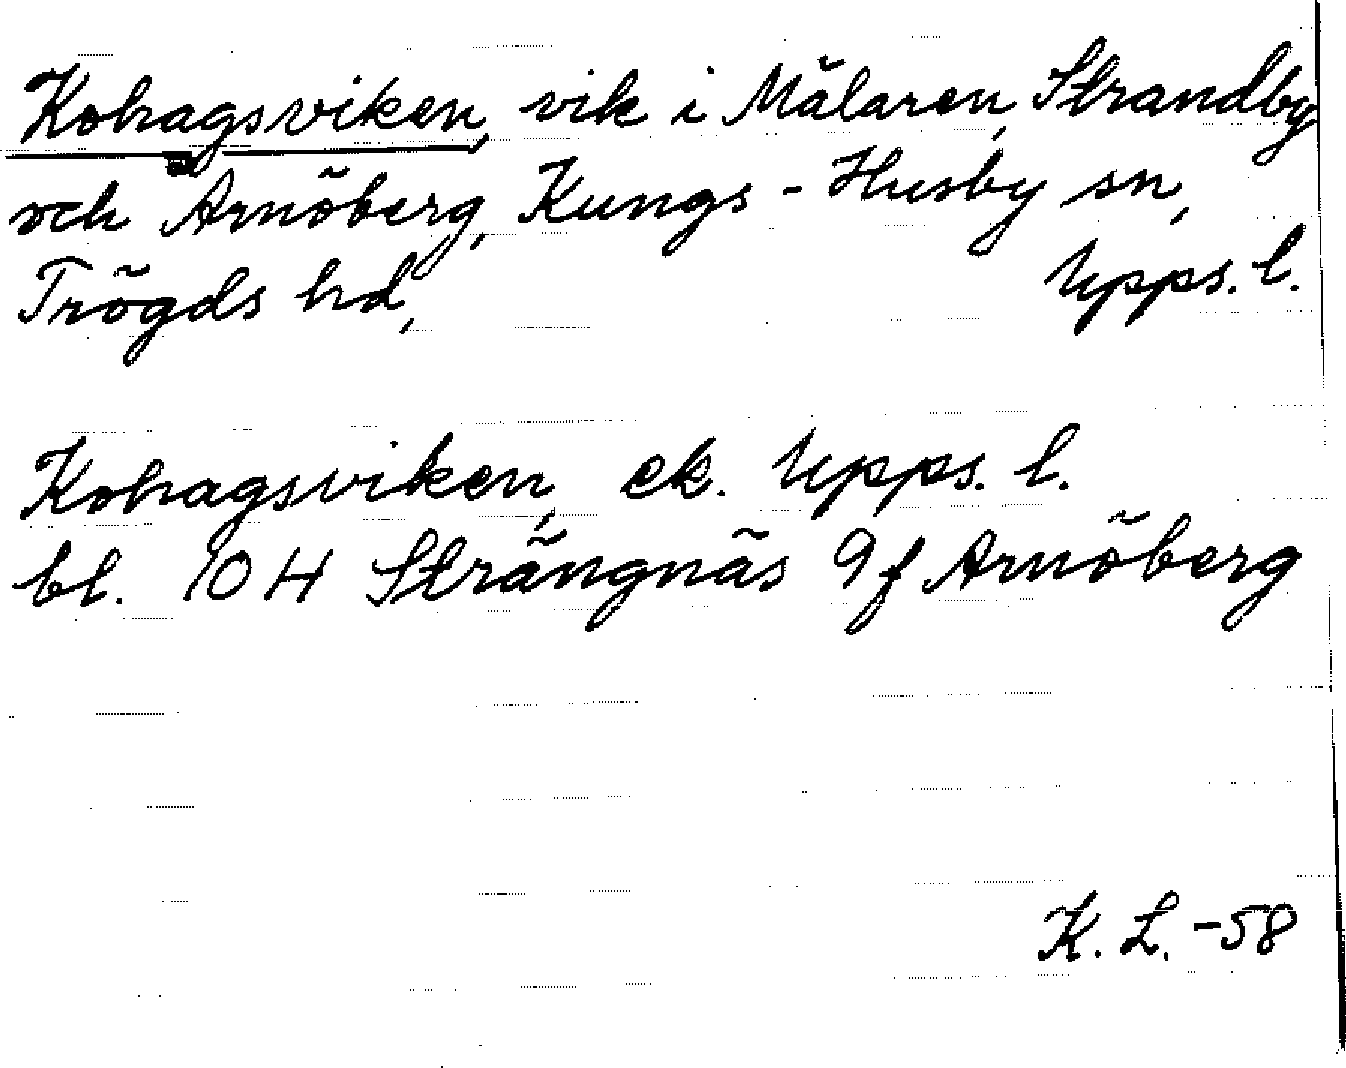 Kohagsviken, vik i Mälaren, Strandby
och Arnöberg, Kungs-Husby sn,
Trögds hd, Upps. l.
Kohagsviken, ek. Upps. l.
bl. 10 H Strängnäs 9 f Arnöberg
K. L. -58